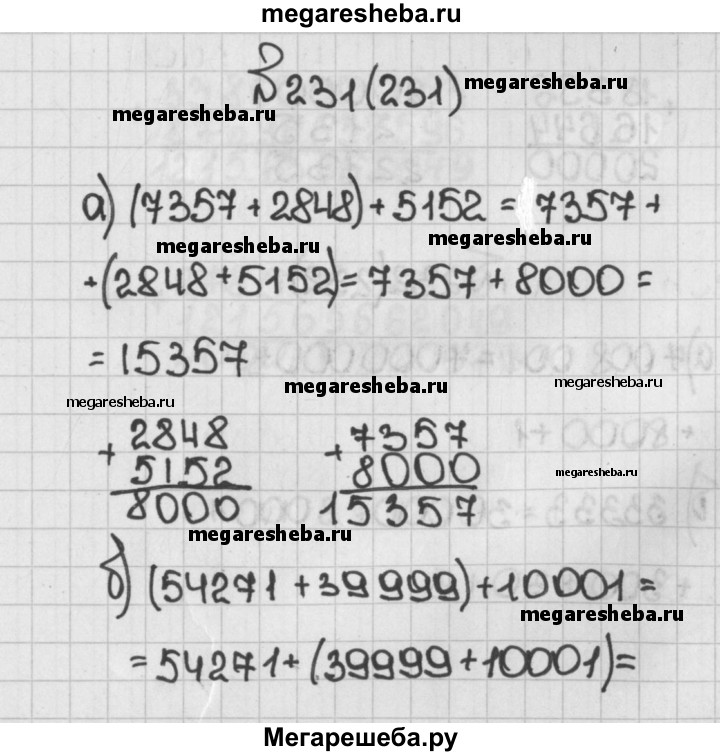 megaresheba.ru
№ 231 (231) megaresheba.ru
megaresheba.ru
а) (7357 + 2848) + 5152 = 7357 +
megaresheba.ru megaresheba.ru
+ (2848 + 5152) = 7357 + 8000 =
= 15357
megaresheba.ru megaresheba.ru
megaresheba.ru
+ 2848 + 7357
5152 8000 megaresheba.ru
8000 15357
megaresheba.ru
б) (54271 + 39999) + 10001 =
megaresheba.ru
= 54271 + (39999 + 10001) =
Мегарешеба.ру